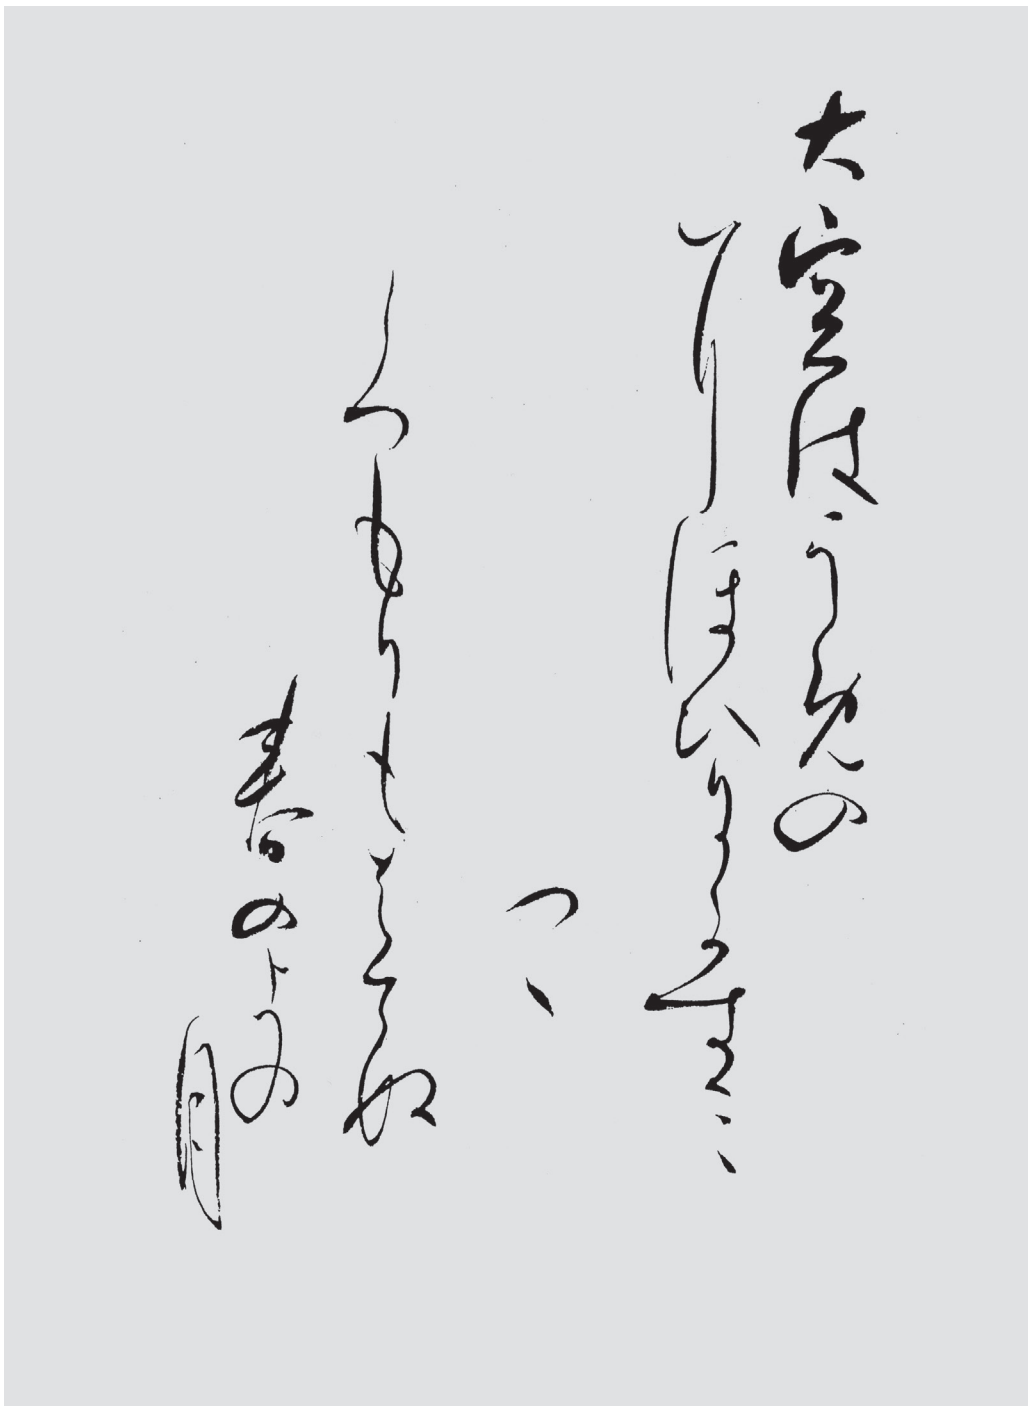 大空はうめの
にほひにかすみ
つゝ
くもりもはてぬ
春のよの
月